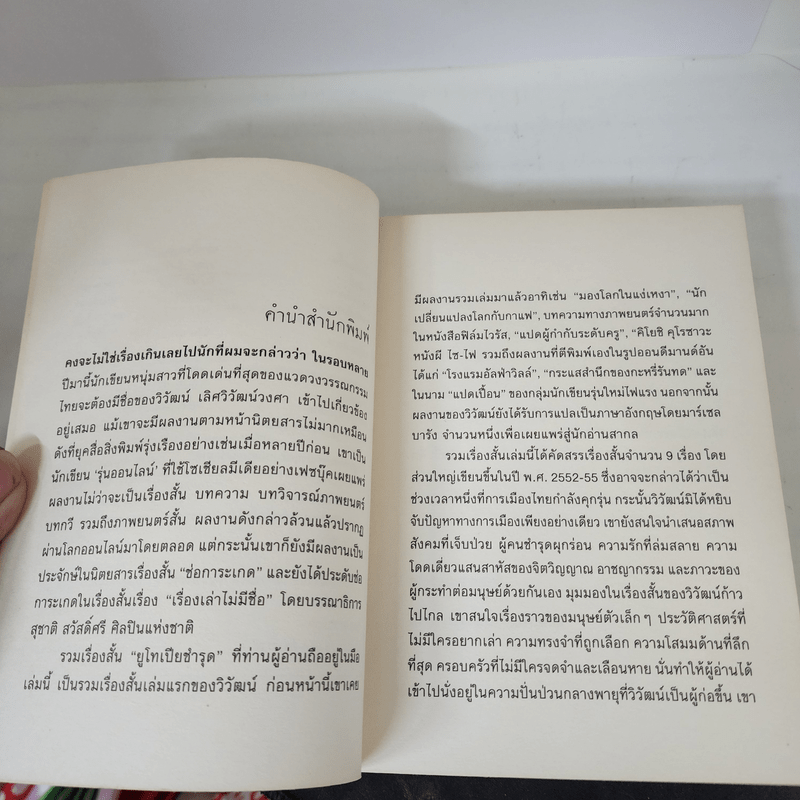 คำนำสำนักพิมพ์
คงจะไม่ใช่เรื่องเกินเลยไปนักที่ผมจะกล่าวว่า ในรอบหลาย
ปีมานี้นักเขียนหนุ่มสาวที่โดดเด่นที่สุดของแวดวงวรรณกรรม
ไทยจะต้องมีชื่อของวิวัฒน์ เลิศวิวัฒน์วงศา เข้าไปเกี่ยวข้อง
อยู่เสมอ แม้เขาจะมีผลงานตามหน้านิตยสารไม่มากเหมือน
ดังที่ยุคสื่อสิ่งพิมพ์รุ่งเรืองอย่างเช่นเมื่อหลายปีก่อน เขาเป็น
นักเขียน ‘รุ่นออนไลน์’ ที่ใช้โซเชียลมีเดียอย่างเฟซบุ๊คเผยแพร่
ผลงานไม่ว่าจะเป็นเรื่องสั้น บทความ บทวิจารณ์ภาพยนตร์
บทกวี รวมถึงภาพยนตร์สั้น ผลงานดังกล่าวล้วนแล้วปรากฏ
ผ่านโลกออนไลน์มาโดยตลอด แต่กระนั้นเขาก็ยังมีผลงานเป็น
ประจักษ์ในนิตยสารเรื่องสั้น “ช่อการะเกด” และยังได้ประดับช่อ
การะเกดในเรื่องสั้นเรื่อง “เรื่องเล่าไม่มีชื่อ” โดยบรรณาธิการ
สุชาติ สวัสดิ์ศรี ศิลปินแห่งชาติ
รวมเรื่องสั้น “ยูโทเปียชำรุด” ที่ท่านผู้อ่านถืออยู่ในมือ
เล่มนี้ เป็นรวมเรื่องสั้นเล่มแรกของวิวัฒน์ ก่อนหน้านี้เขาเคย
มีผลงานรวมเล่มมาแล้วอาทิเช่น “มองโลกในแง่เหงา”, “นัก
เปลี่ยนแปลงโลกกับกาแฟ”, บทความทางภาพยนตร์จำนวนมาก
ในหนังสือฟิล์มไวรัส, “แปดผู้กำกับระดับครู”, “คิโยชิ คุโรซาวะ
หนังผี ไซ-ไฟ รวมถึงผลงานที่ตีพิมพ์เองในรูปออนดีมานด์อัน
ได้แก่ “โรงแรมอัลฟ่าวิลล์”, “กระแสสำนึกของกะหรี่รันทด” และ
ในนาม “แปดเปื้อน” ของกลุ่มนักเขียนรุ่นใหม่ไฟแรง นอกจากนั้น
ผลงานของวิวัฒน์ยังได้รับการแปลเป็นภาษาอังกฤษโดยมาร์เซล
บารัง จำนวนหนึ่งเพื่อเผยแพร่สู่นักอ่านสากล
รวมเรื่องสั้นเล่มนี้ได้คัดสรรเรื่องสั้นจำนวน 9 เรื่อง โดย
ส่วนใหญ่เขียนขึ้นในปี พ.ศ. 2552-55 ซึ่งอาจจะกล่าวได้ว่าเป็น
ช่วงเวลาหนึ่งที่การเมืองไทยกำลังคุกรุ่น กระนั้นวิวัฒน์มิได้หยิบ
จับปัญหาทางการเมืองเพียงอย่างเดียว เขายังสนใจนำเสนอสภาพ
สังคมที่เจ็บป่วย ผู้คนชำรุดผุกร่อน ความรักที่ล่มสลาย ความ
โดดเดี่ยวแสนสาหัสของจิตวิญญาณ อาชญากรรม และภาวะของ
ผู้กระทำต่อมนุษย์ด้วยกันเอง มุมมองในเรื่องสั้นของวิวัฒน์ก้าว
ไปไกล เขาสนใจเรื่องราวของมนุษย์ตัวเล็กๆ ประวัติศาสตร์ที่
ไม่มีใครอยากเล่า ความทรงจำที่ถูกเลือก ความโสมมด้านที่ลึก
ที่สุด ครอบครัวที่ไม่มีใครจดจำและเลือนหาย นั่นทำให้ผู้อ่านได้
เข้าไปนั่งอยู่ในความปั่นป่วนกลางพายุที่วิวัฒน์เป็นผู้ก่อขึ้น เขา